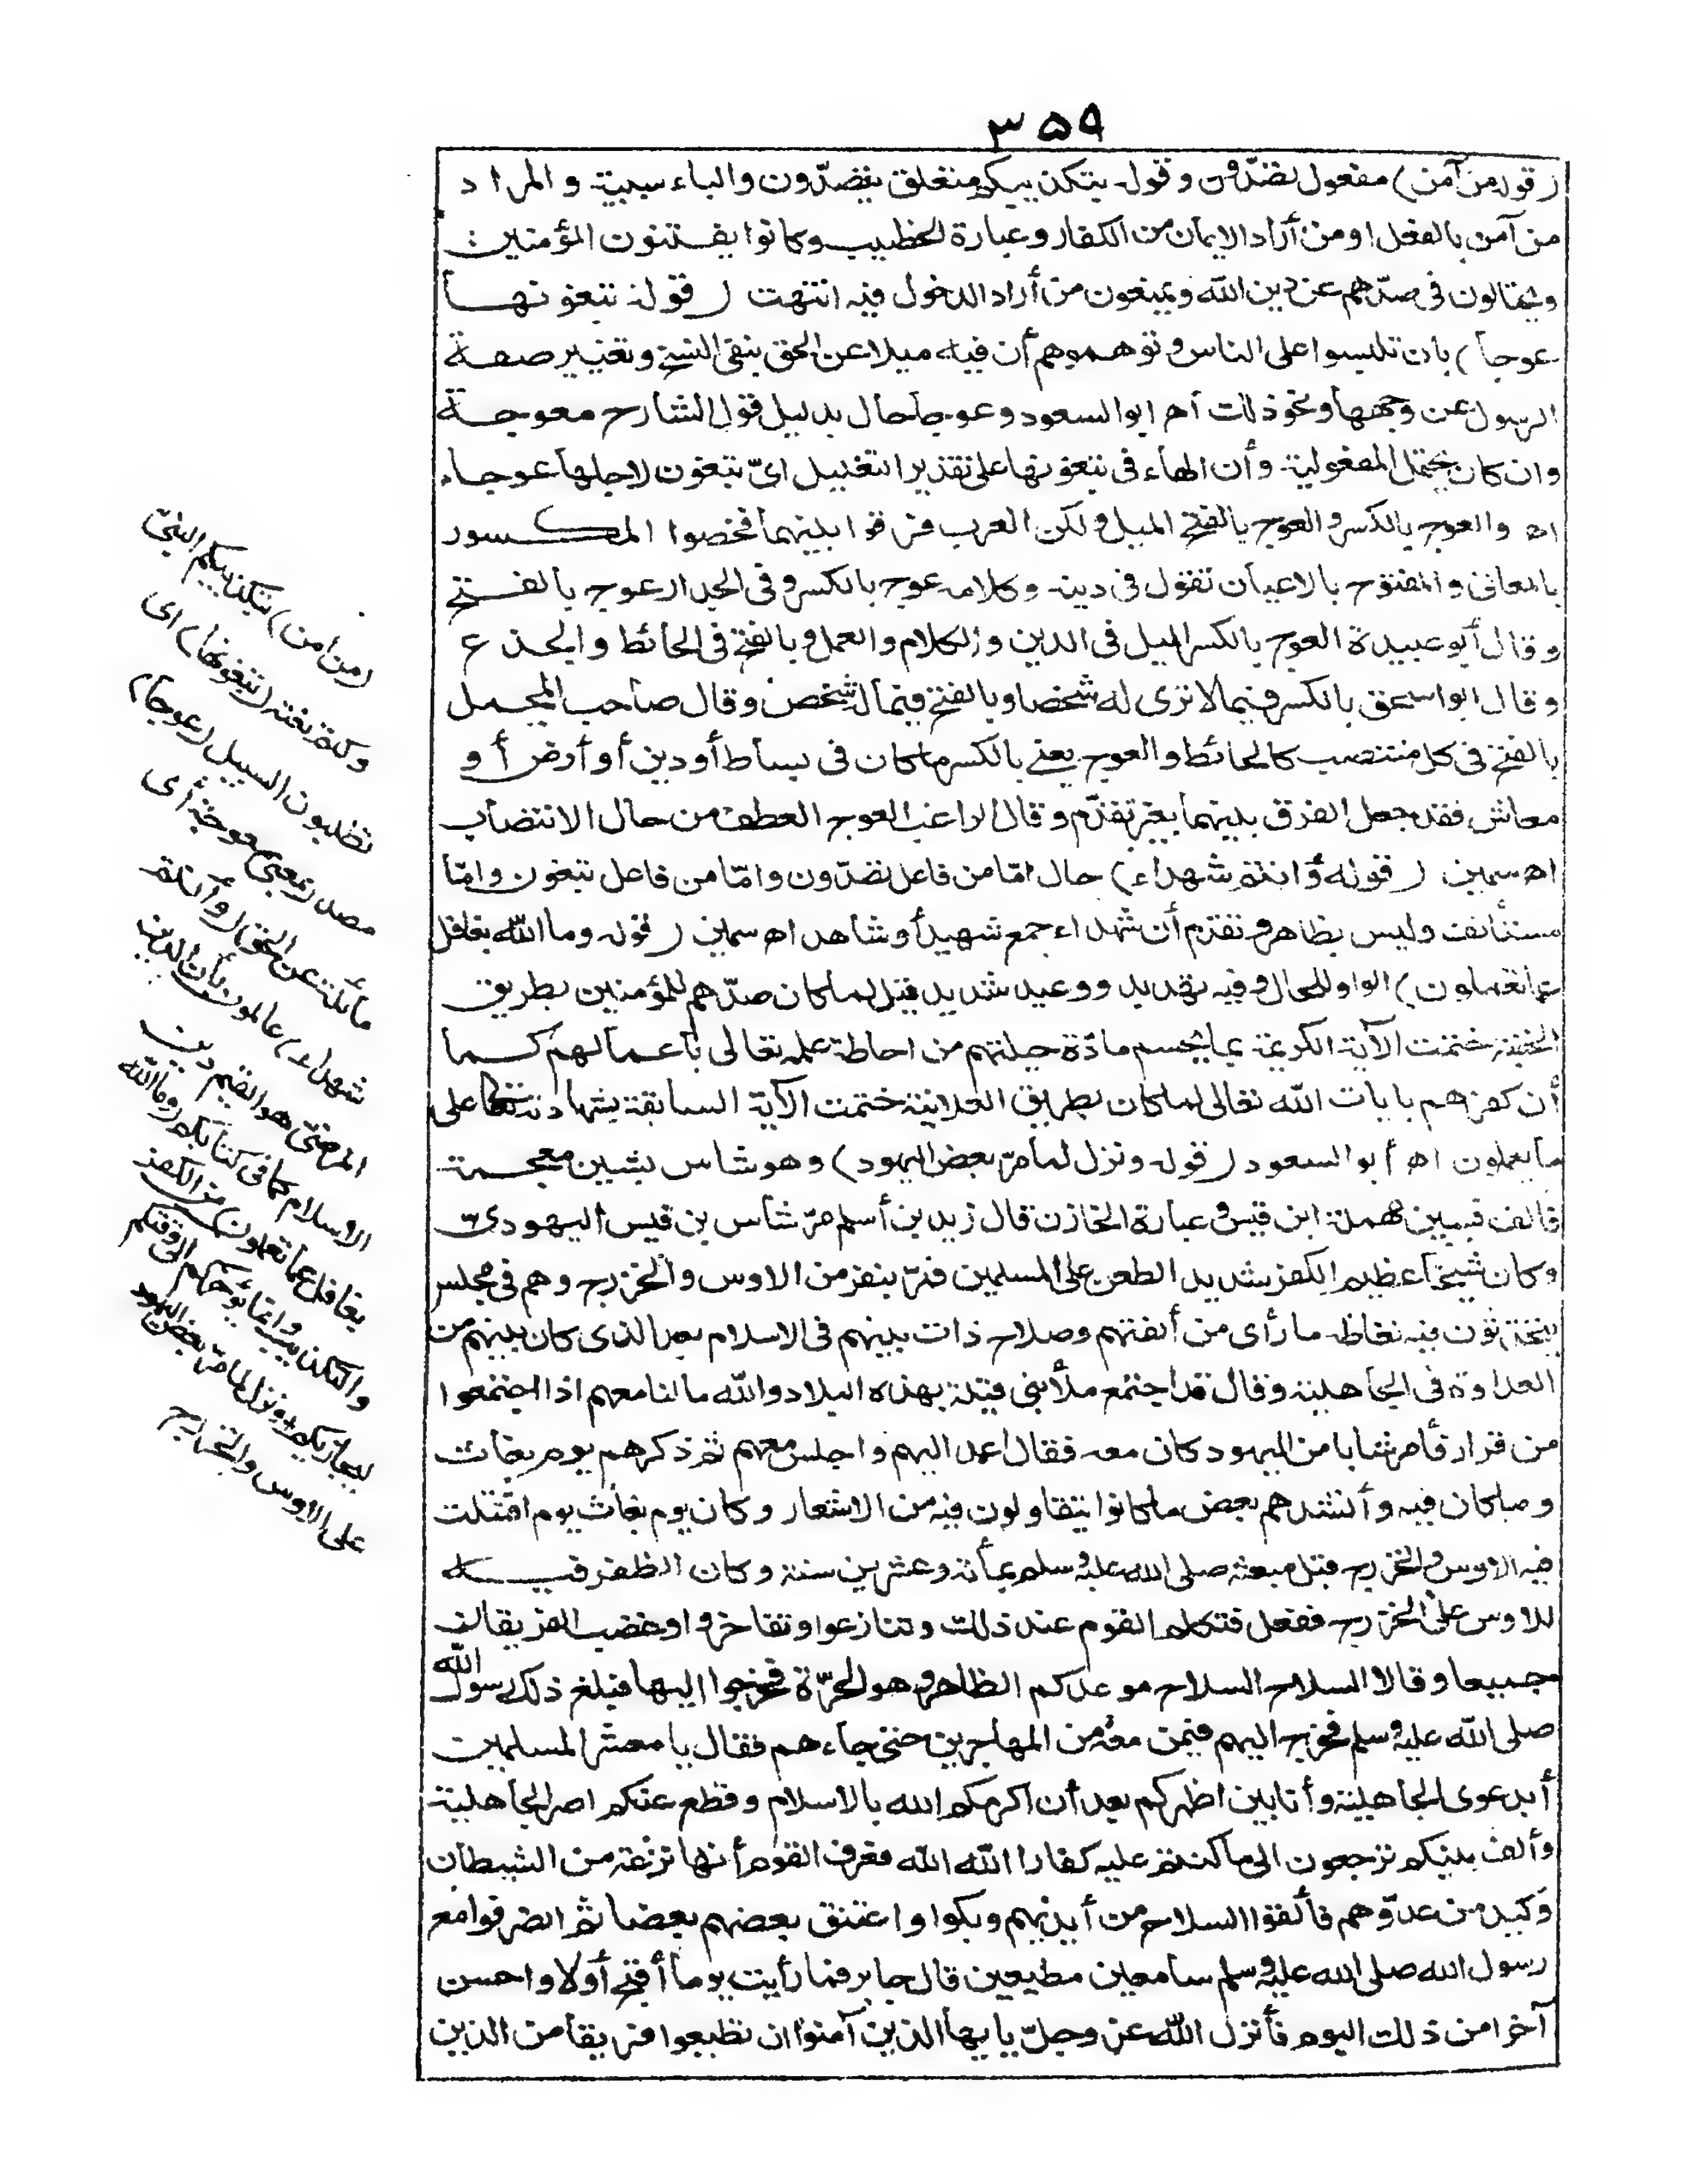 ٣٥٩
(قوله من آمن) مفعول تصدّون وقوله بتكذيبكم متعلق بتصدّون والباء سببية والمراد
من آمن بالفعل او من أراد الايمان من الكفار وعبارة الخطيب وكانوا يفتنون المؤمنين
ويحتالون فى صدّهم عن دين الله ويمنعون من أراد الدخول فيه انتهت (قوله تبغونها
عوجا) بان تلبسوا على الناس وتوهموهم أن فيه ميلا عن الحق بنفى النسخ وتغيير صفة
الرسول عن وجهها ونحو ذلك اه ابو السعود وعوجا حال بدليل قول الشارح معوجة
وان كان يحتمل المفعولية وأن الهاء فى تبغونها على تقدير التعليل اى تبغون لاجلها عوجا
اه والعوج بالكسر والعوج بالفتح الميل ولكن العرب فرقوا بينهما فخصوا المكسور
بالمعانى والمفتوح بالاعيان تقول فى دينه وكلامه عوج بالكسر وفى الجدار عوج بالفتح
وقال أبو عبيدة العوج بالكسر الميل فى الدين والكلام والعمل وبالفتح فى الحائط والجذع
وقال ابو اسحق بالكسر فيما لا ترى له شخصا وبالفتح فيما له شخص وقال صاحب المجمل
بالفتح فى كل منتصب كالحائط والعوج يعنى بالكسر ما كان فى بساط أو دين أو أرض أو
معاش فقد جعل الفرق بينهما بغير ما تقدّم وقال الراغب العوج العطف من حال الانتصاب
اه سمين (قوله وأنتم شهداء) حال امّا من فاعل تصدّون وامّا من فاعل تبغون وامّا
مستأنف وليس بظاهر وتقدم أن شهداء جمع شهيد أو شاهد اه سمين (قوله وما الله بغافل
عما تعملون) الواو للحال وفيه تهديد ووعيد شديد قيل لما كان صدّهم للمؤمنين بطريق
الخفية ختمت الآية الكريمة بما يحسم مادّة حيلتهم من احاطة علمه تعالى بأعمالهم كما
أن كفرهم بايات الله تعالى لما كان بطريق العلانية ختمت الآية السابقة بشهادته تعالى على
ما يعملون اه أبو السعود (قوله ونزل لما مرّ بعض اليهود) وهو شاس بشين معجمة
فالف فسين مهملة ابن قيس وعبارة الخازن قال زيد بن أسلم مرّ شأس بن قيس اليهودى
وكان شيخا عظيم الكفر شديد الطعن على المسلمين فمرّ بنفر من الاوس والخزرج وهم فى مجلس
يتحدّثون فيه فغاظه ما رأى من ألفتهم وصلاح ذات بينهم فى الاسلام بعد الذى كان بينهم من
العداوة فى الجاهلية وقال قد اجتمع ملأ بنى قيلة بهذه البلاد والله ما لنا معهم اذا اجتمعوا
من قرار فأمر شابا من اليهود كان معه فقال اعمد اليهم واجلس معهم ثم ذكرهم يوم بغاث
وما كان فيه وأنشدهم بعض ما كانوا يتقاولون فيه من الاشعار وكان يوم بغاث يوم اقتتلت
فيه الاوس والخزرج قبل مبعثه صلى الله عليه وسلم بمأئة وعشرين سنة وكان الظفر فيه
للاوس على الخزرج ففعل فتكلم القوم عند ذلك وتنازعوا وتفاخروا وغضب الفريقان
جميعا وقالا السلاح السلاح موعدكم الظاهرة وهو الحرّة فخرجوا اليها فبلغ ذلك رسول الله
صلى الله عليه وسلم فخرج اليهم فيمن معه من المهاجرين حتى جاءهم فقال يا معشر المسلمين
أبدعوى الجاهلية وأنا بين اظهركم بعد أن اكرمكم الله بالاسلام وقطع عنكم امر الجاهلية
وألف بينكم ترجعون الى ما كنتم عليه كفارا الله الله فعرف القوم أنها نزغة من الشيطان
وكيد من عدوّهم فألقوا السلاح من أيديهم وبكوا واعتنق بعضهم بعضا ثم انصرفوا مع
رسول الله صلى الله عليه وسلم سامعين مطيعين قال جابر فما رأيت يوما أقبح أولا واحسن
آخرا من ذلك اليوم فأنزل الله عز وجلّ يايها الذين آمنوا ان تطيعوا فريقا من الذين
(من امن) بتكذيبكم النبىّ
وكتم نعته (تبغونها) اى
تطلبون السبيل (عوجا)
مصدر بمعنى معوجة أى
مأئلة عن الحق (وأنتم
شهداء) عالمون بأن الدين
المرضىّ هو القيم دين
الاسلام كما فى كتابكم (وما الله
بغافل عما تعملون) من الكفر
والتكذيب وانما يؤخركم الى وقتكم
ليجازيكم ونزل لما مرّ بعض اليهود
على الاوس والخزرج